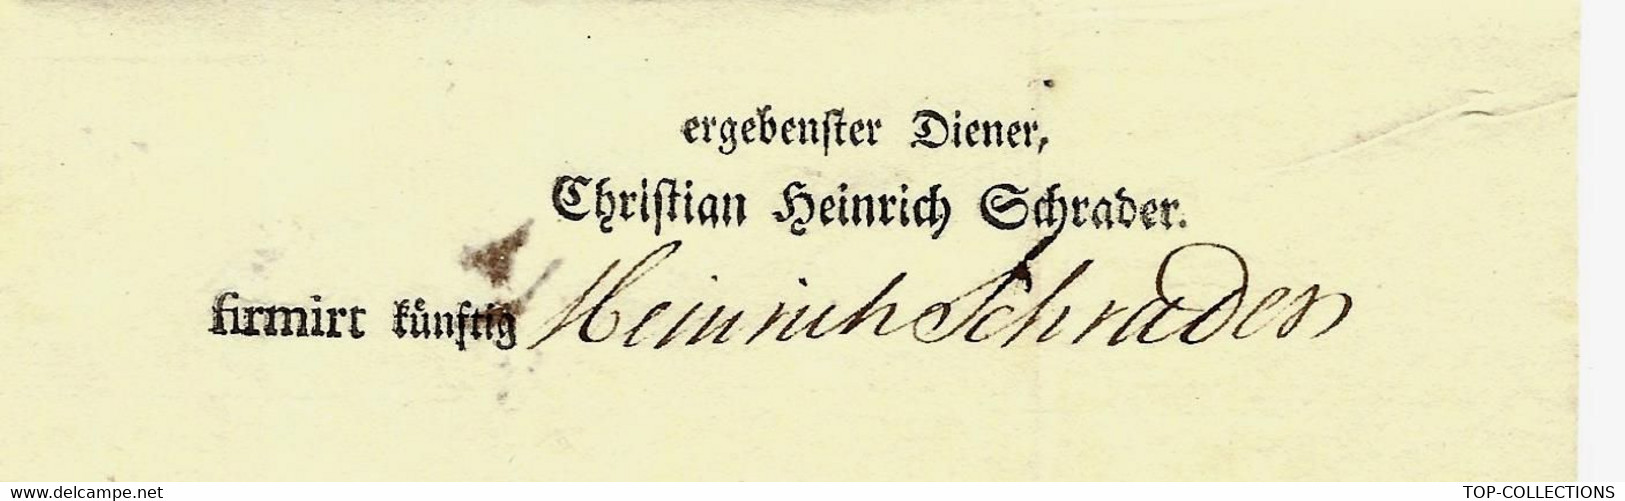 ergebenſter Diener,
Chriſtian Heinrich Schrader.
firmirt künftig Heinrich Schrader
www.delcampe.net
TOP-COLLECTIONS